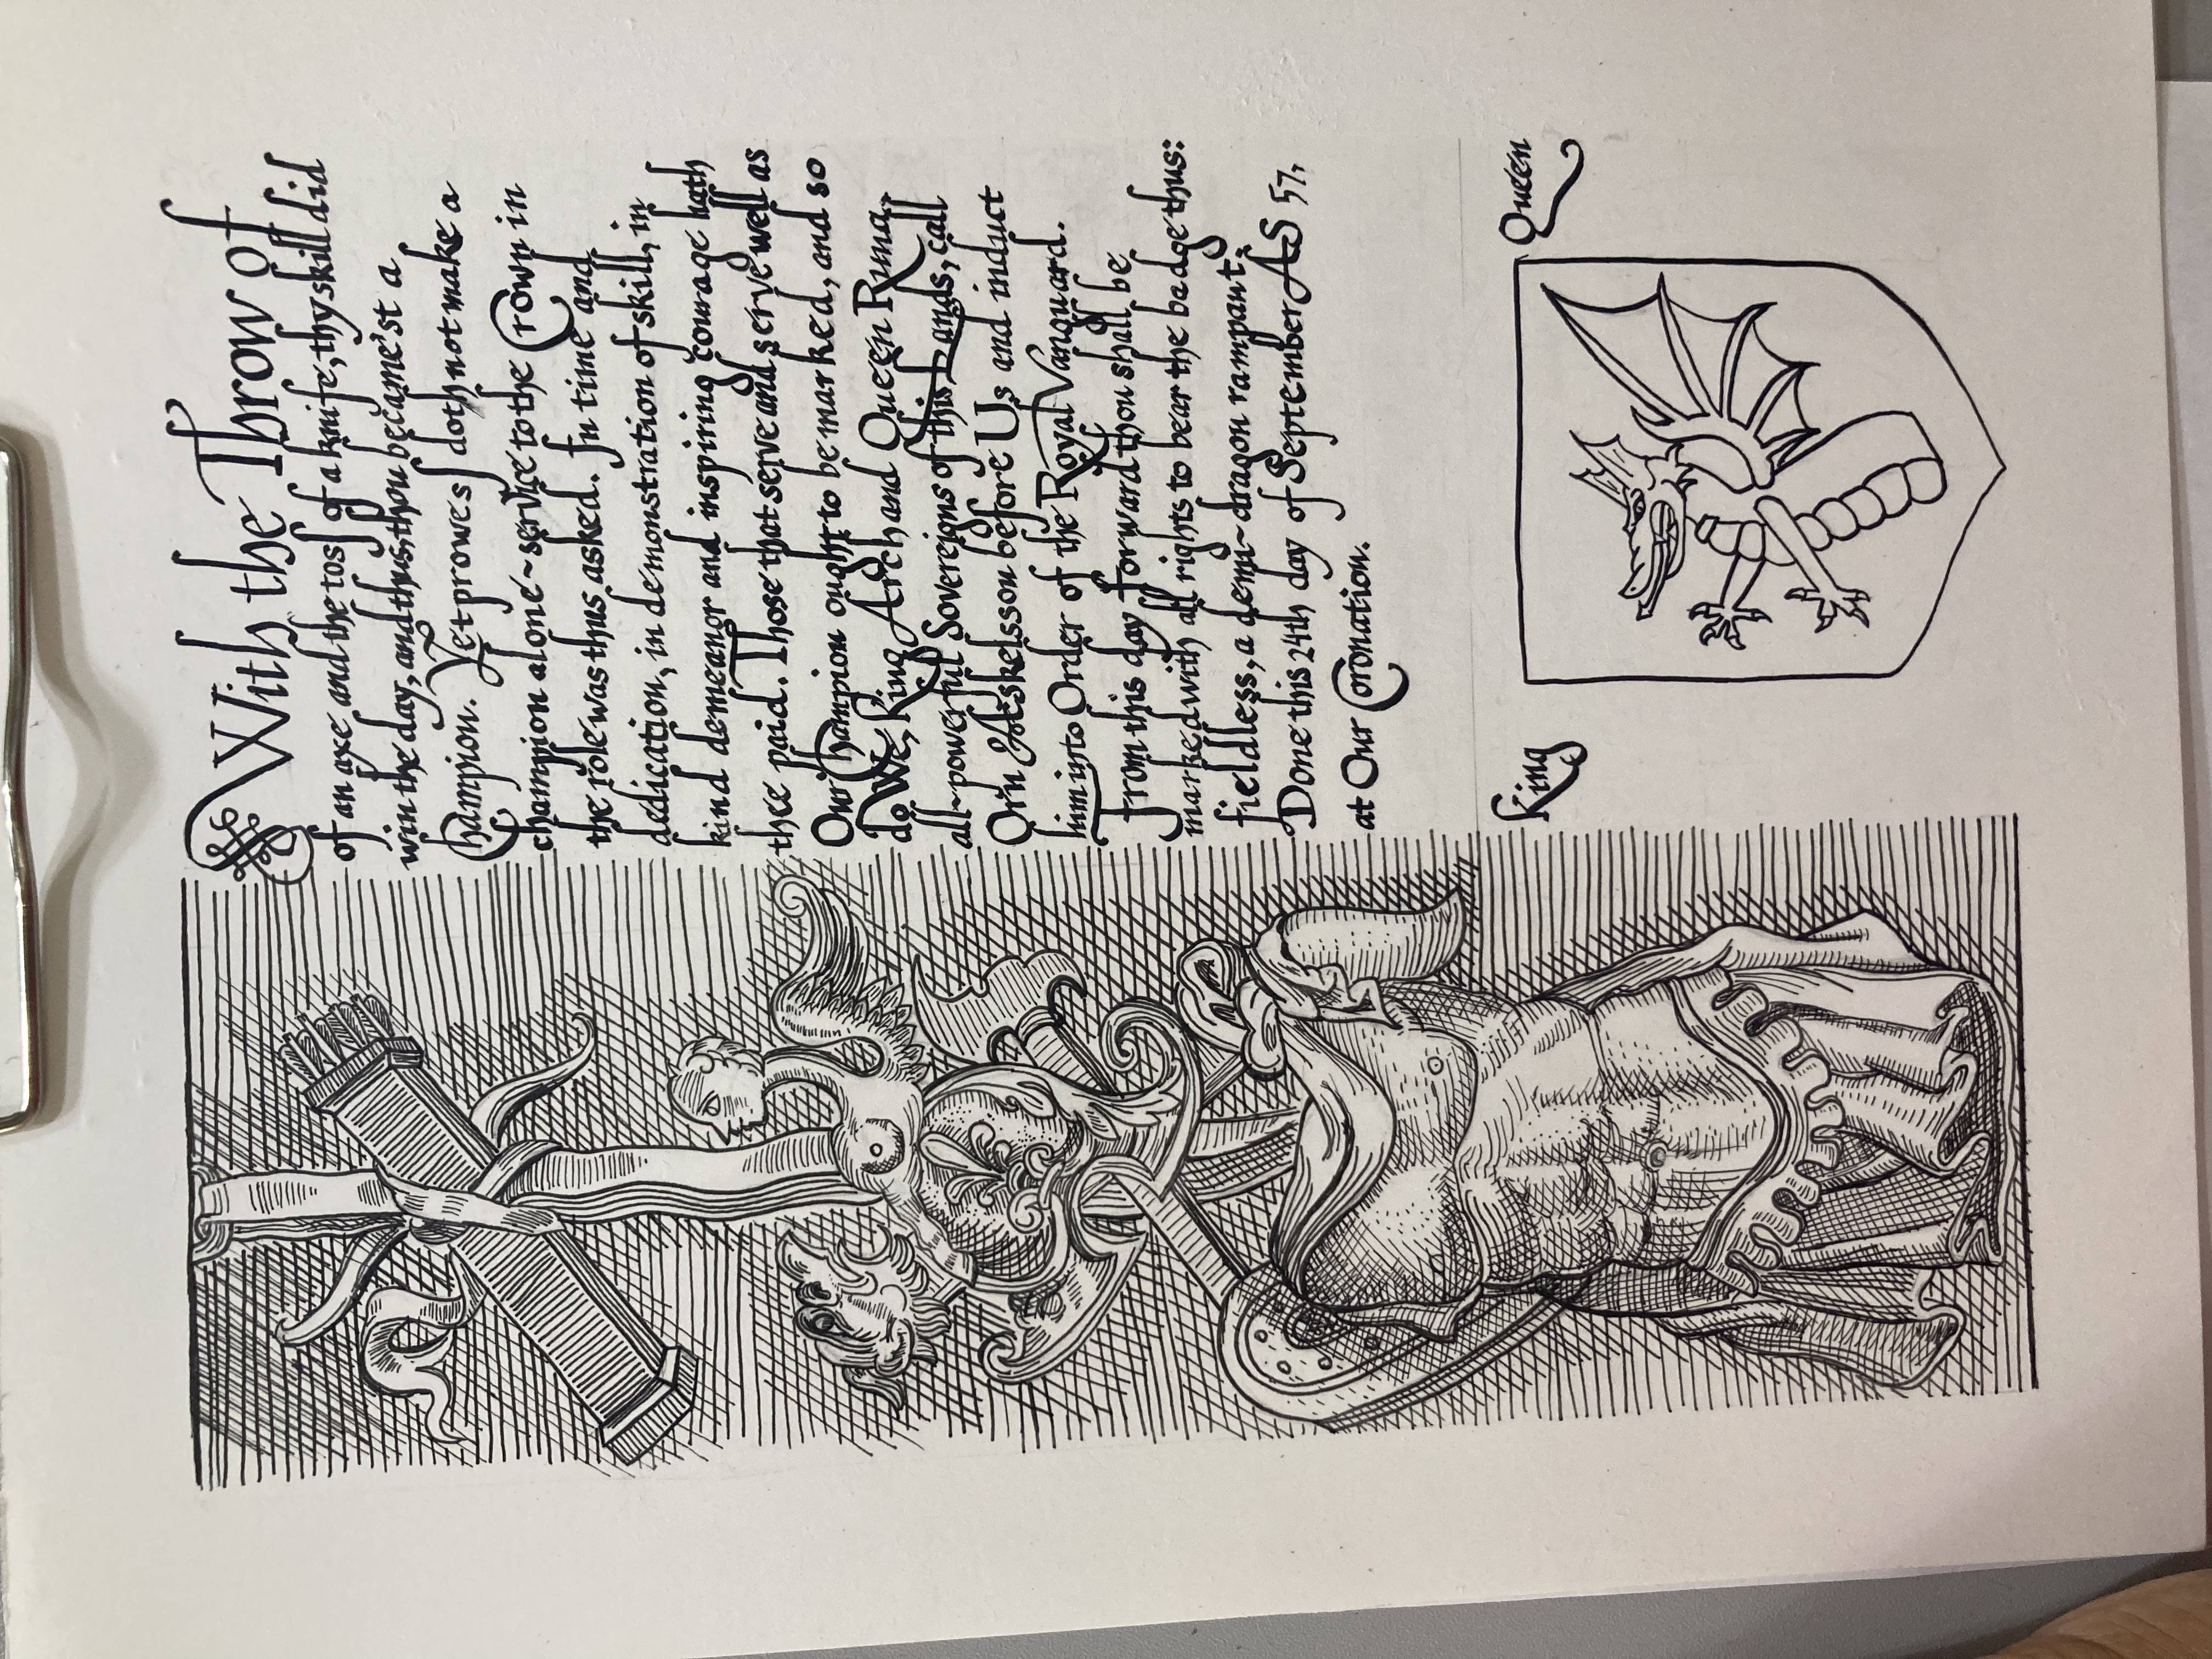 With the Throw of
of an axe and the toss of a knife, thy skill did
win the day, and thus, thou became'st a
Champion. Yet prowess doth not make a
champion alone - service to the Crown in
the role was thus asked. In time and
dedication, in demonstration of skill, in
kind demeanor and inspiring courage hath
thee paid. Those that serve and serve well as
Our Champion ought to be marked, and so
do We, King Arch and Queen Runa,
all-powerful Sovereigns of this Lands, call
Orin Aeskelsson before Us and induct
him into Order of the Royal Vanguard.
From this day forward thou shall be
marked with all rights to bear the badge thus:
fieldless, a demi-dragon rampant.
Done this 24th day of September AS 57,
at Our Coronation.
King Queen